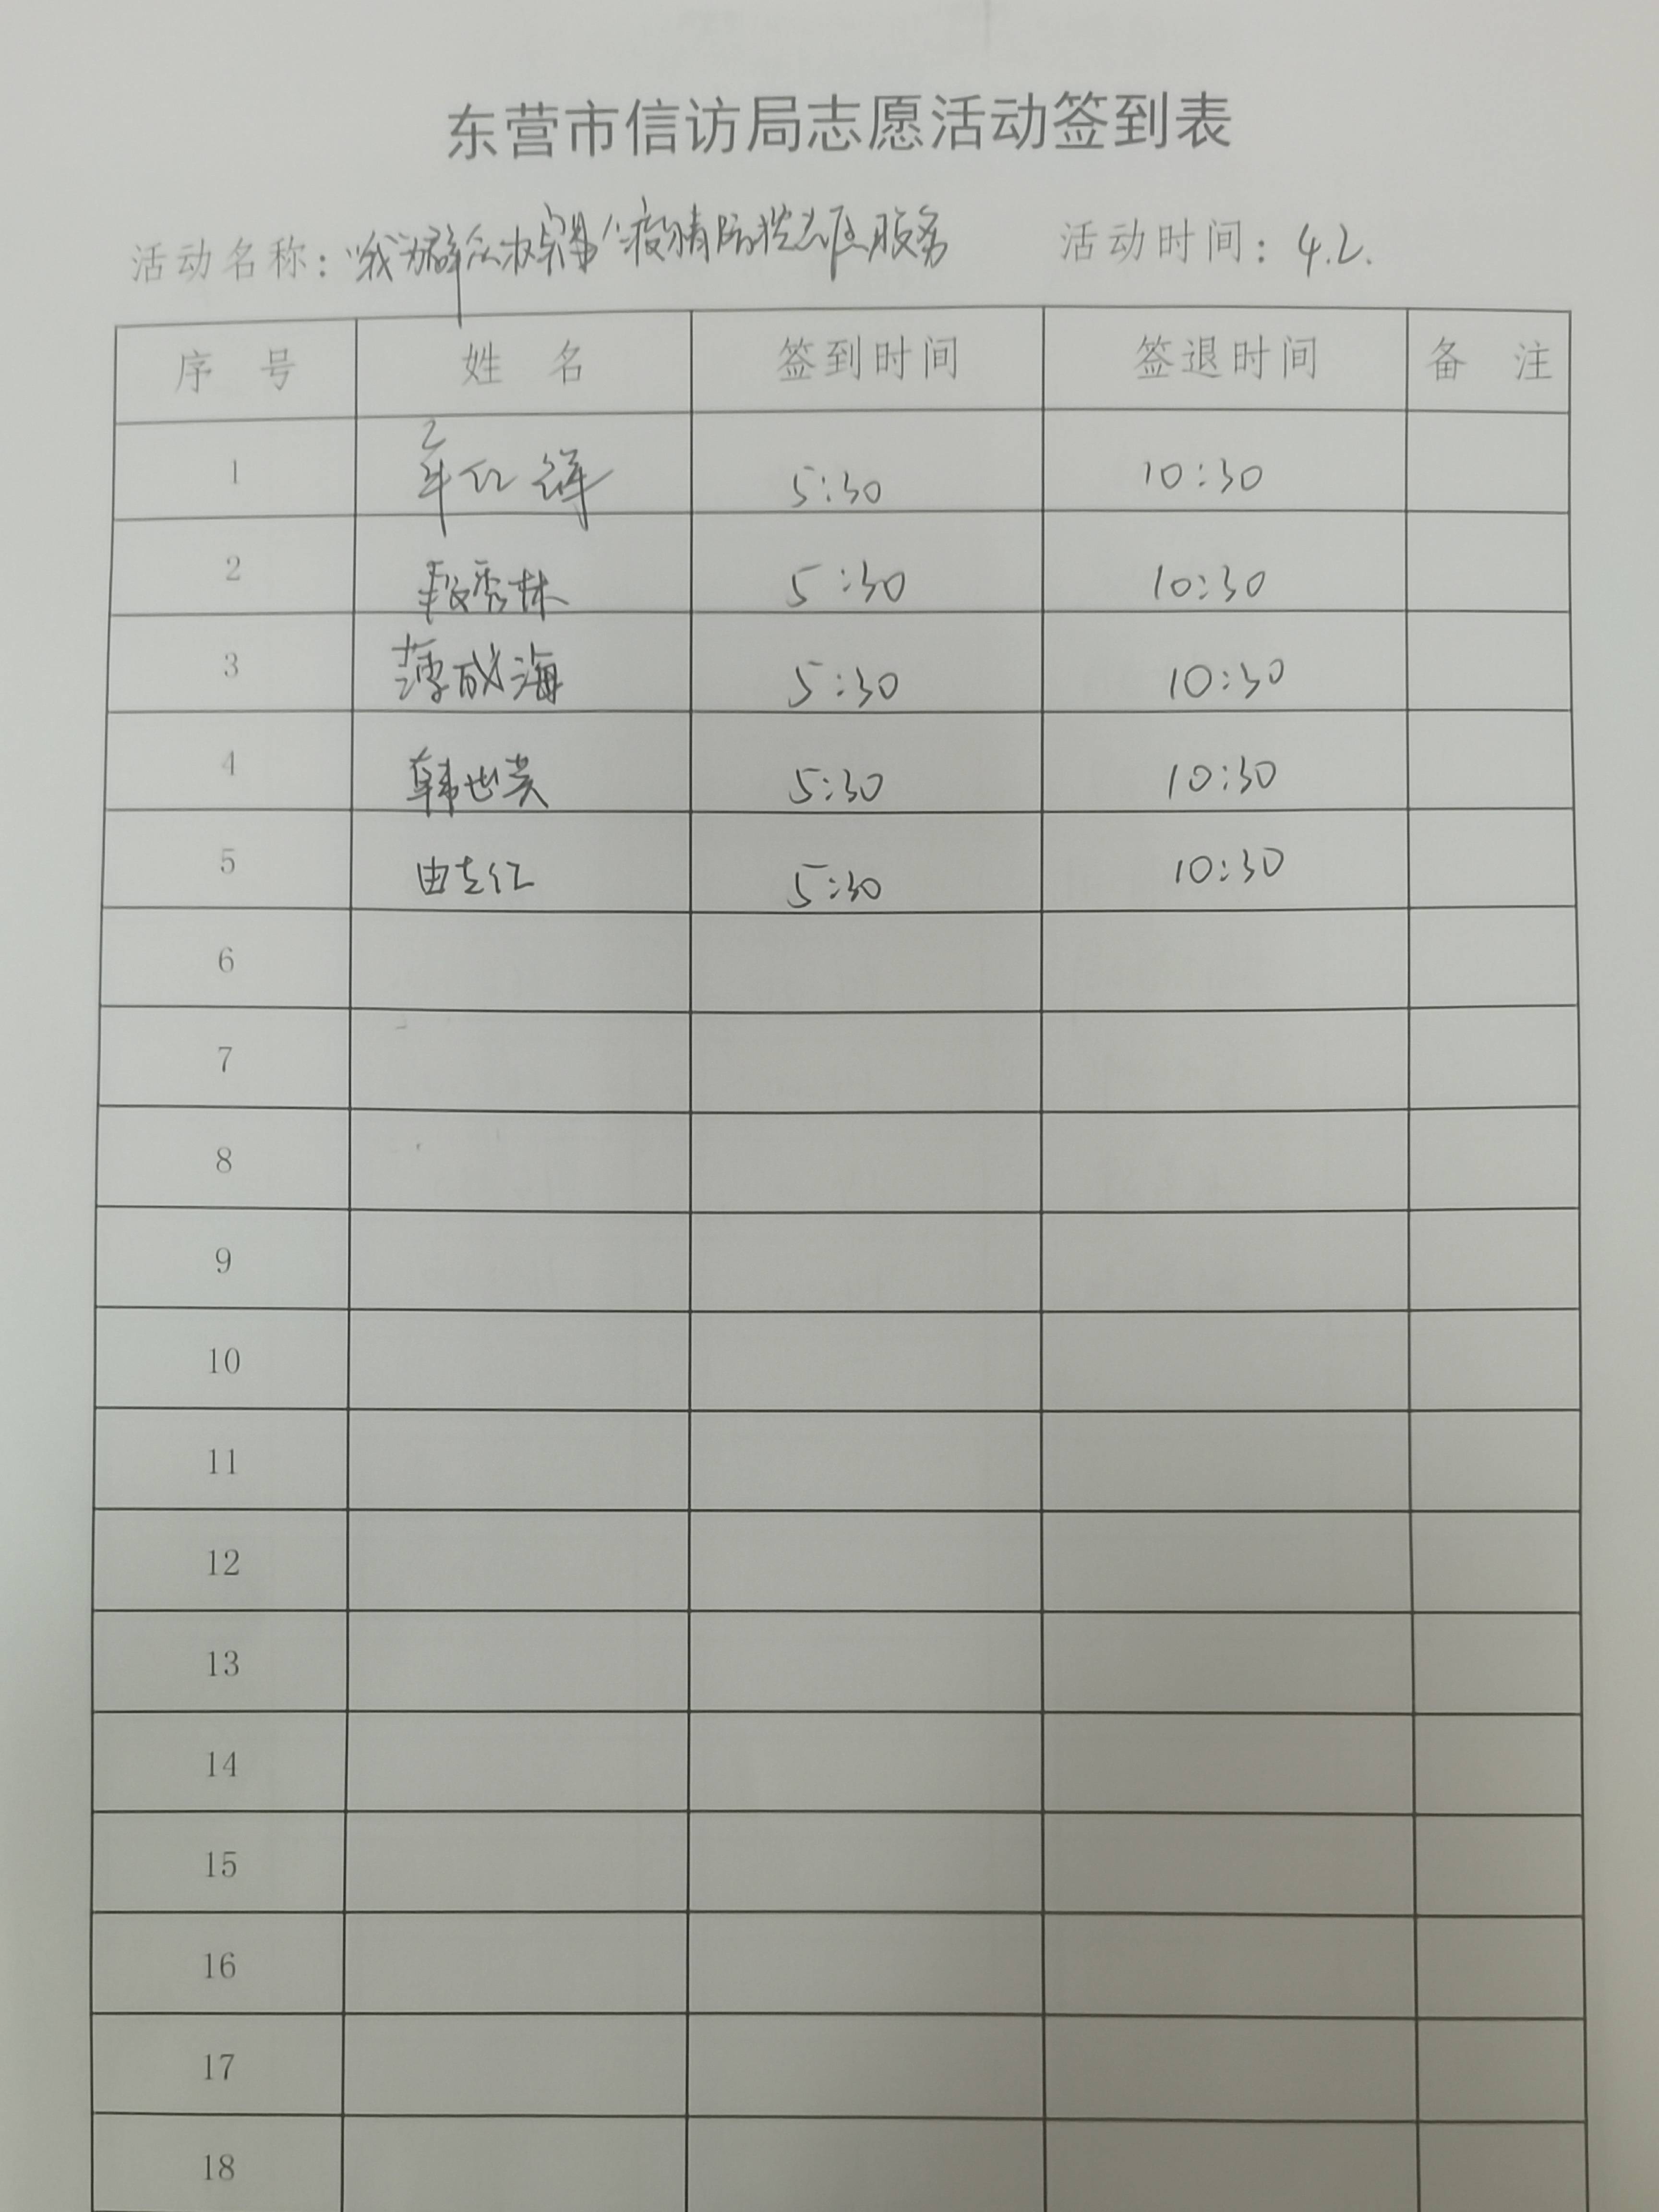 东营市信访局志愿活动签到表
活动名称：“我为群众办实事”疫情防控志愿服务 活动时间：4.2.
序 号 姓 名 签到时间 签退时间 备 注
1 5:30 10:30
2 段秀林 5:30 10:30
3 薄成海 5:30 10:30
4 韩世英 5:30 10:30
5 由志红 5:30 10:30
6
7
8
9
10
11
12
13
14
15
16
17
18